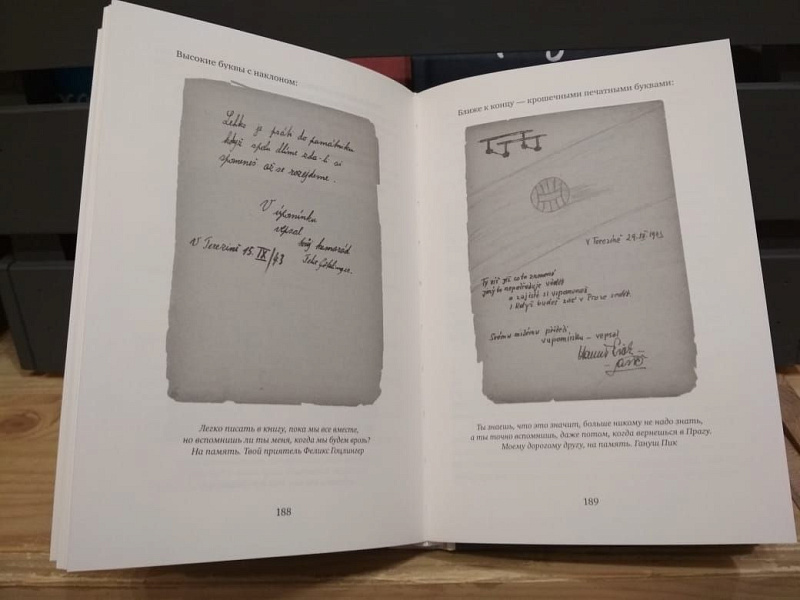 Высокие буквы с наклоном:
Lehko je psáti do památníku
když spolu dlíme zda-li si
spomeneš až se rozejdeme.
V úpomínku
vepsal
tvůj kamarád
V Terezíně 15. IX/43
Легко писать в книгу, пока мы все вместе,
но вспомнишь ли ты меня, когда мы будем врозь?
На память. Твой приятель Феликс Гоцлингер
188
Ближе к концу — крошечными печатными буквами:
V Terezíně 29. IX 1943
Ty víš již co to znamená
jiný to nepotřebuje vědět
a zajisté si vzpomeneš
i když budeš zas v Praze sedět.
Svému milému příteli,
vzpomínku - vepsal
Ты знаешь, что это значит, больше никому не надо знать,
а ты точно вспомнишь, даже потом, когда вернешься в Прагу.
Моему дорогому другу, на память. Гануш Пик
189